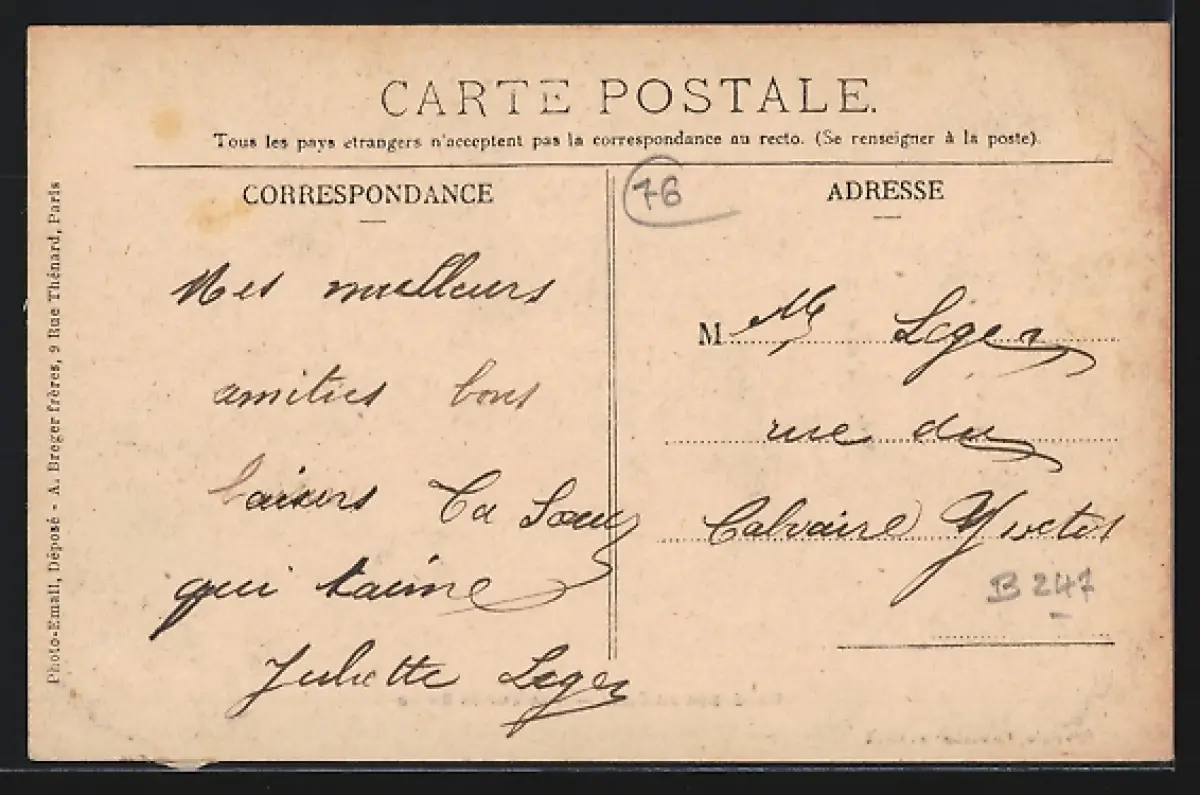 CARTE POSTALE.
Tous les pays etrangers n'acceptent pas la correspondance au recto. (Se renseigner à la poste).
CORRESPONDANCE
Mes meilleurs
amitiés bons
baisers Ta Sœur
qui t'aime
Juliette Leger
76
ADRESSE
M Leger
rue du
Calvaire Yvetot
B 247
Photo-Email, Déposé - A. Breger frères, 9 Rue Thénard, Paris